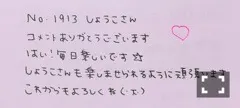 No. 1913 しょうこさん
コメントありがとうございます
はい！毎日楽しいです☆
しょうこさんも楽しませられるように頑張ります
これからもよろしくね(･x･)